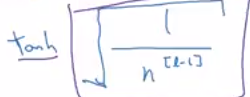 tanh √(1 / n^[l-1])